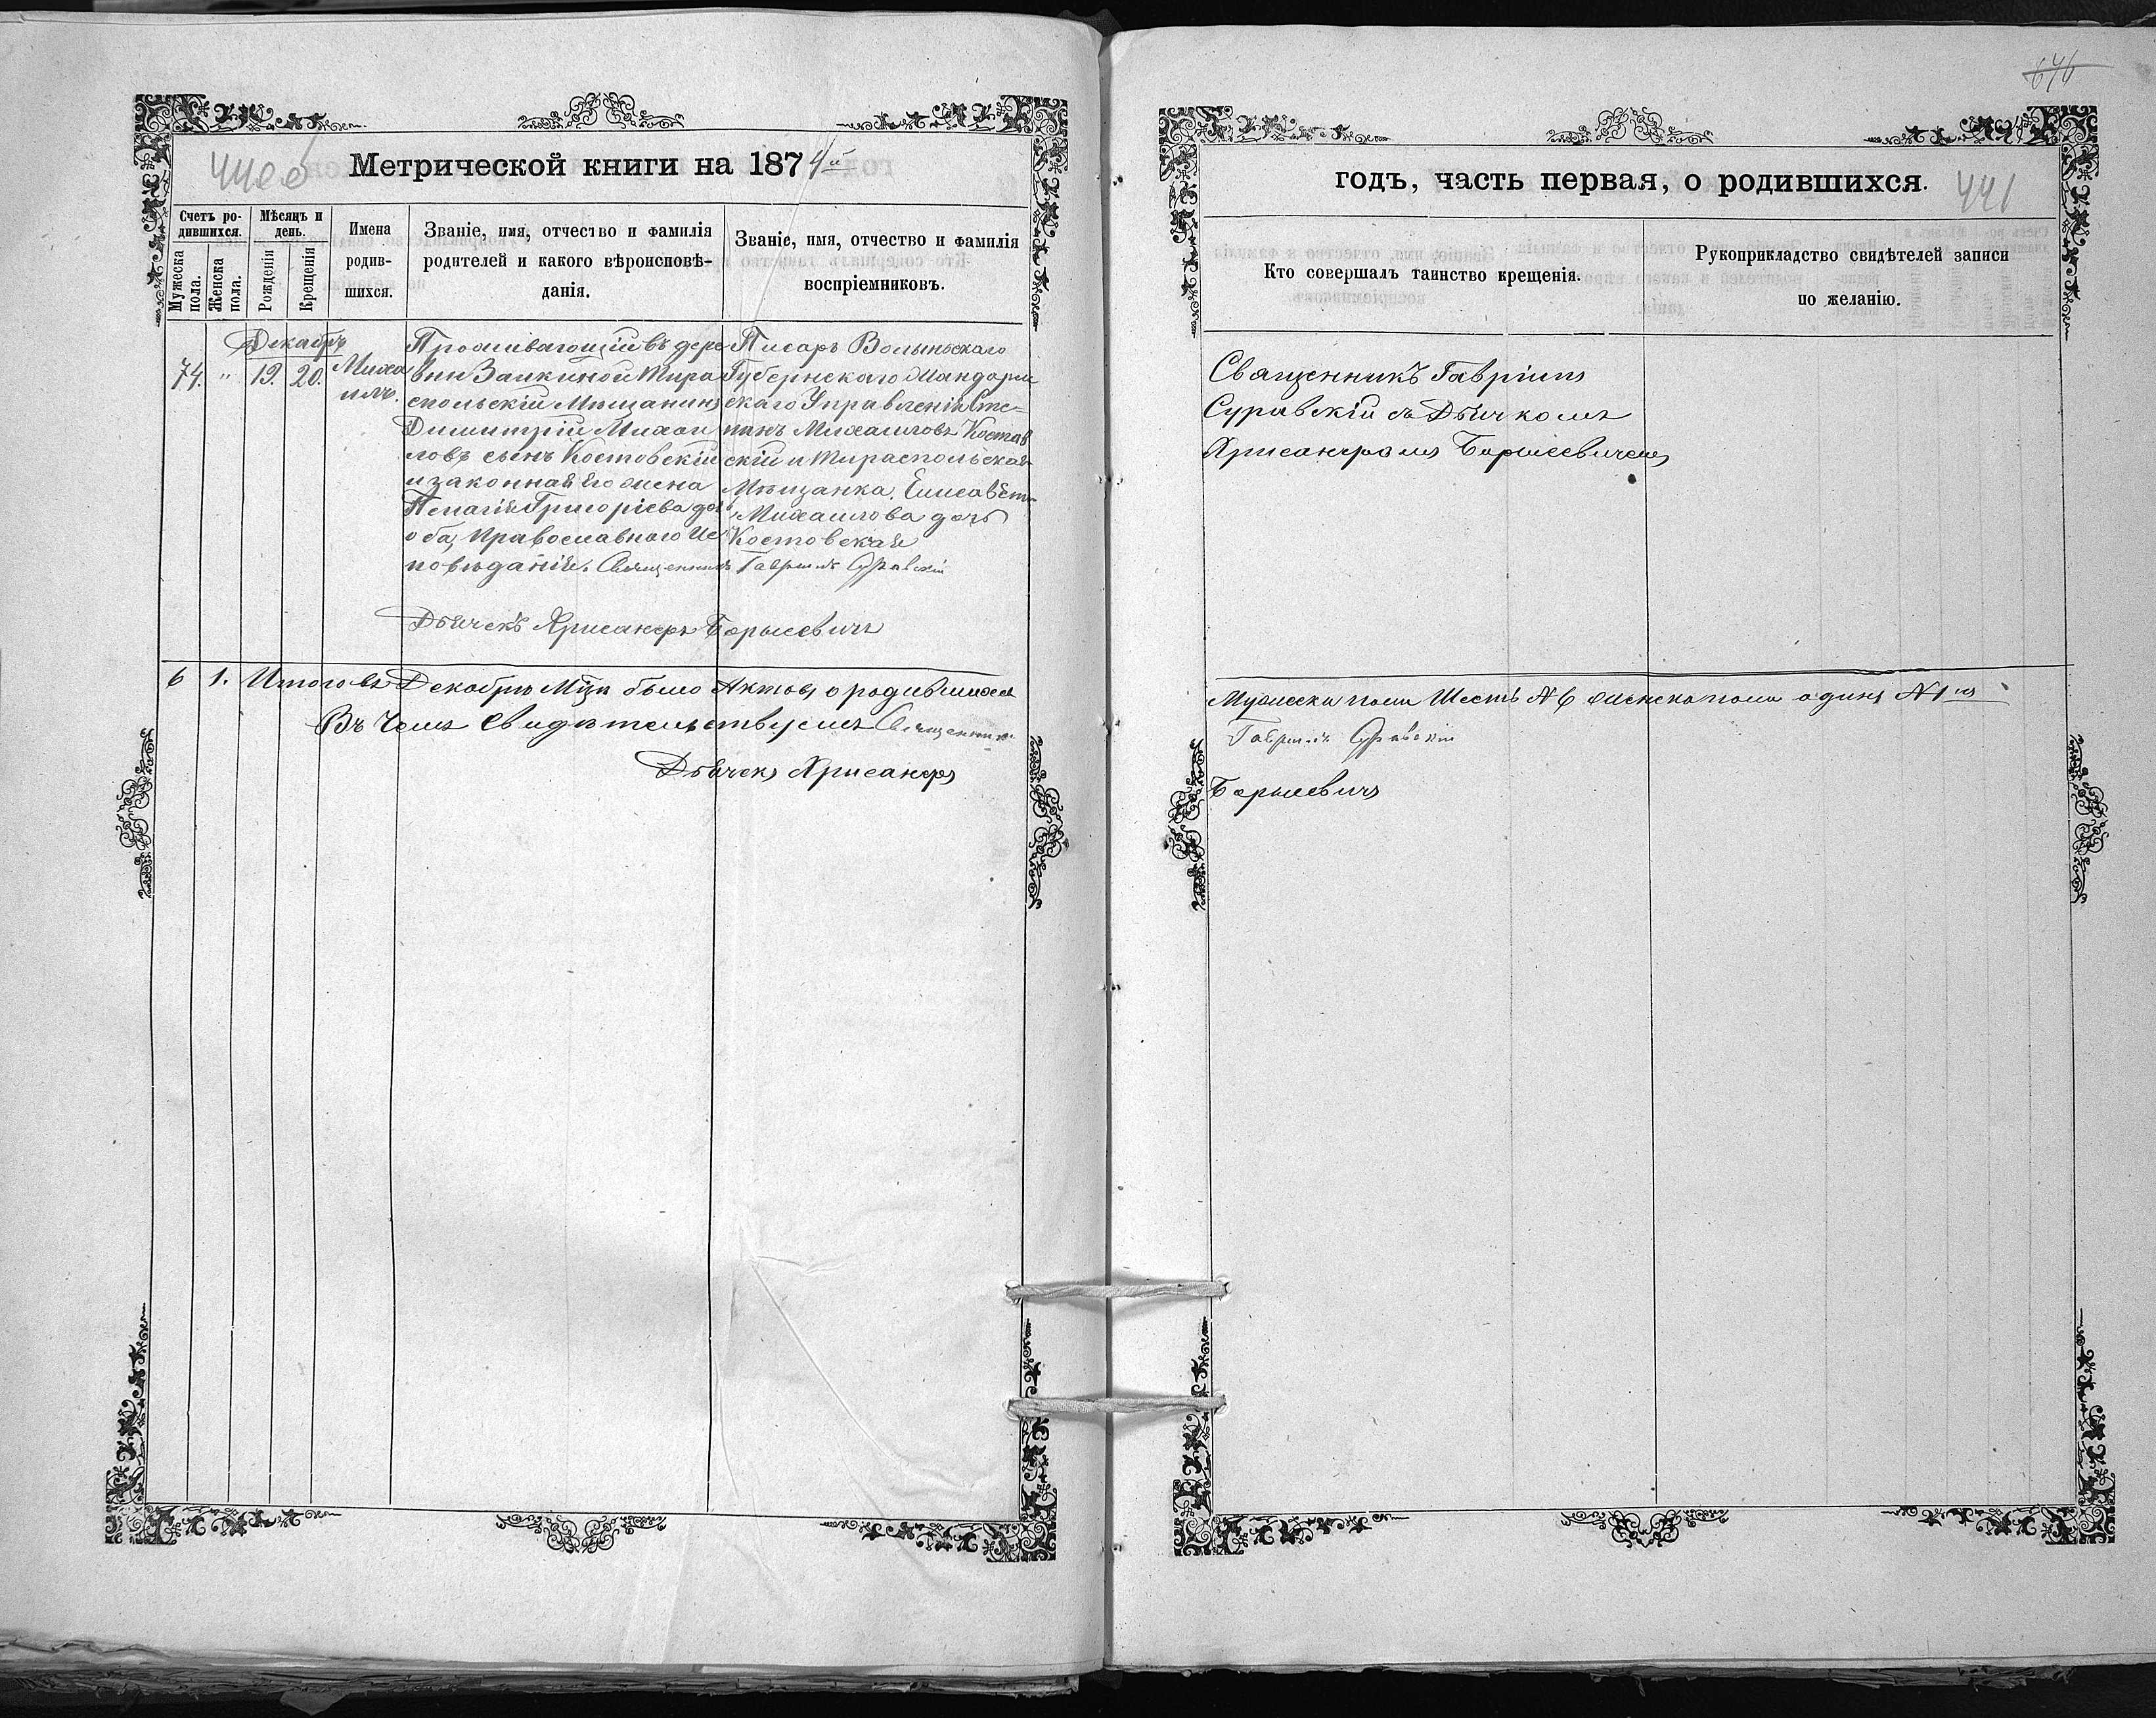 646
440 об
Метрической книги на 1874й
Счетъ родившихся.
Мужеска пола.
Женска пола.
Мѣсяцъ и день.
Рожденія
Крещенія
Имена родив-
шихся.
Званіе, имя, отчество и фамилія
родителей и какого вѣроисповѣ-
данія.
Званіе, имя, отчество и фамилія
воспріемниковъ.
Декабрь
74. " 19. 20.
Миха
илъ.
Проживающій въ дере
вни Заикиной Тира
спольскій Мѣщанинъ
Димитрій Михаи
ловъ сынъ Костовскій
и законная его жена
Пелагія Григоріева дочь
оба Православнаго Ис
повѣданія. Священникъ
Писарь Волынскаго
Губернскаго Жандарм
скаго Управленія Сте=
панъ Михаиловъ Костов
скій и Тираспольская
Мѣщанка Елисавета
Михаилова дочь
Костовская
Гавріилъ Суравскій
Дьячекъ Хрисанфъ Борысевичъ
6 1. Итого въ Декабрѣ Мцѣ было Актовъ о родившихся
Въ чемъ Свидѣтельствуемъ Священникъ
Дьячекъ Хрисанфъ
годъ, часть первая, о родившихся.
441
Кто совершалъ таинство крещенія.
Рукоприкладство свидѣтелей записи
по желанію.
Священникъ Гавріилъ
Суравскій съ Дьячкомъ
Хрисанфомъ Борысевичемъ
Мужеска пола Шесть № 6 женска пола одинъ № 1й
Гавріилъ Суравскій
Борысевичъ